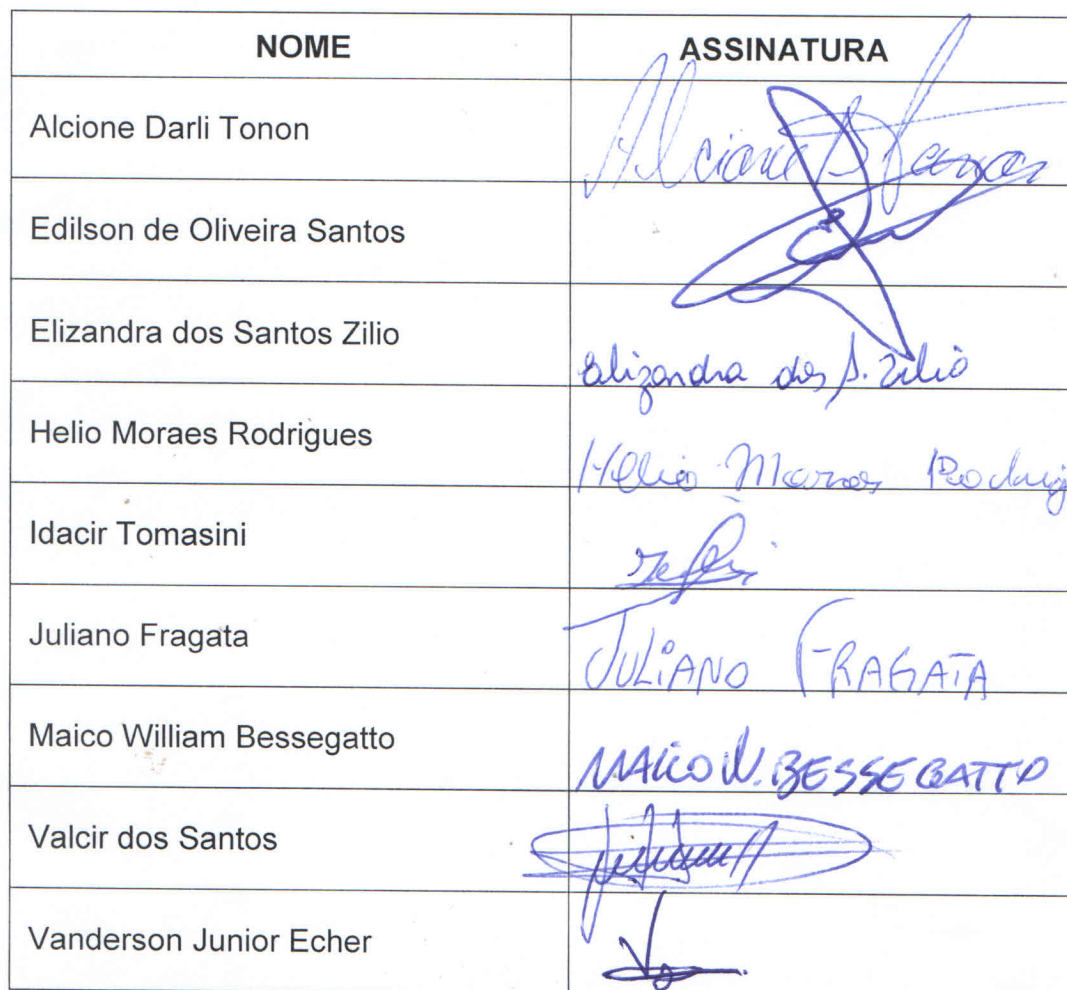 NOME ASSINATURA
Alcione Darli Tonon Alcione D Tonon
Edilson de Oliveira Santos
Elizandra dos Santos Zilio Elizandra dos S. Zilio
Helio Moraes Rodrigues Helio Moraes Rodrig
Idacir Tomasini
Juliano Fragata JULiANO FRAGATA
Maico William Bessegatto MAICO W. BESSEGATTO
Valcir dos Santos
Vanderson Junior Echer